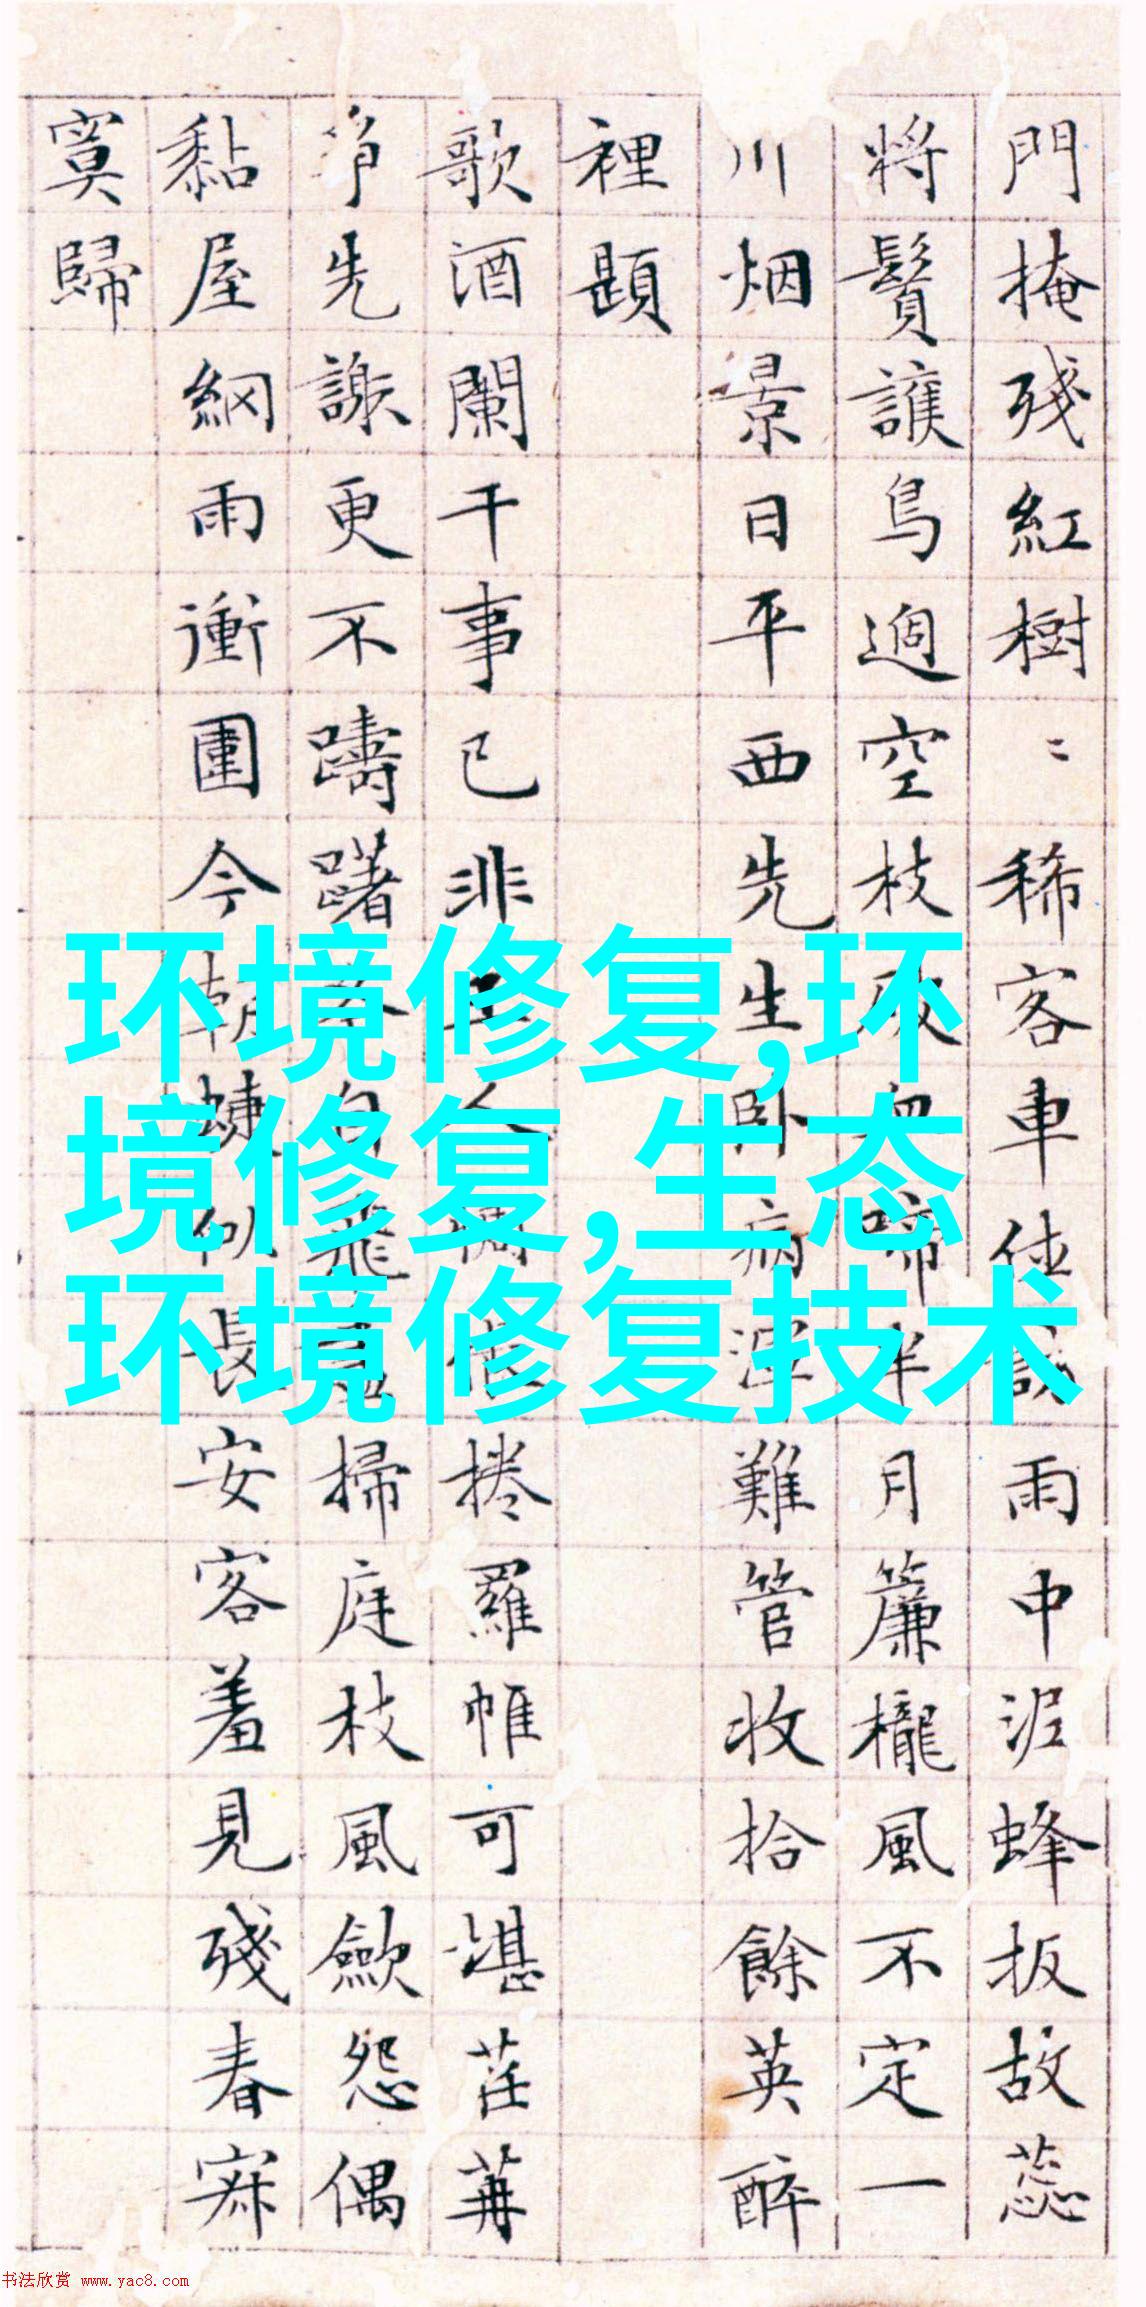 門掩殘紅樹〻稀客車佳誤雨中泥蜂扳故蕊
將鬢護鳥過空枝啼半月簾櫳風不定一
川烟景日平西先生臥病淫難管收拾餘英醉
裡題
歌酒闌干事已非捲羅帷可堪茬苒
爭先謝更不躊躇白飛掃庭枝風歛怨偶
黏屋網雨衝圍今朝蝀似長安客羞見殘春寂
寞歸
环境修复,环
境修复,生态
环境修复技术
书法欣赏 www.yac8.com